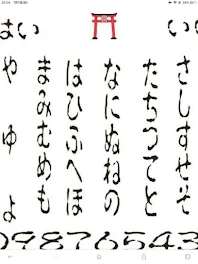 はい いい
さしすせそ
たちつてと
なにぬねの
はひふへほ
まみむめも
やゆよ
09876543